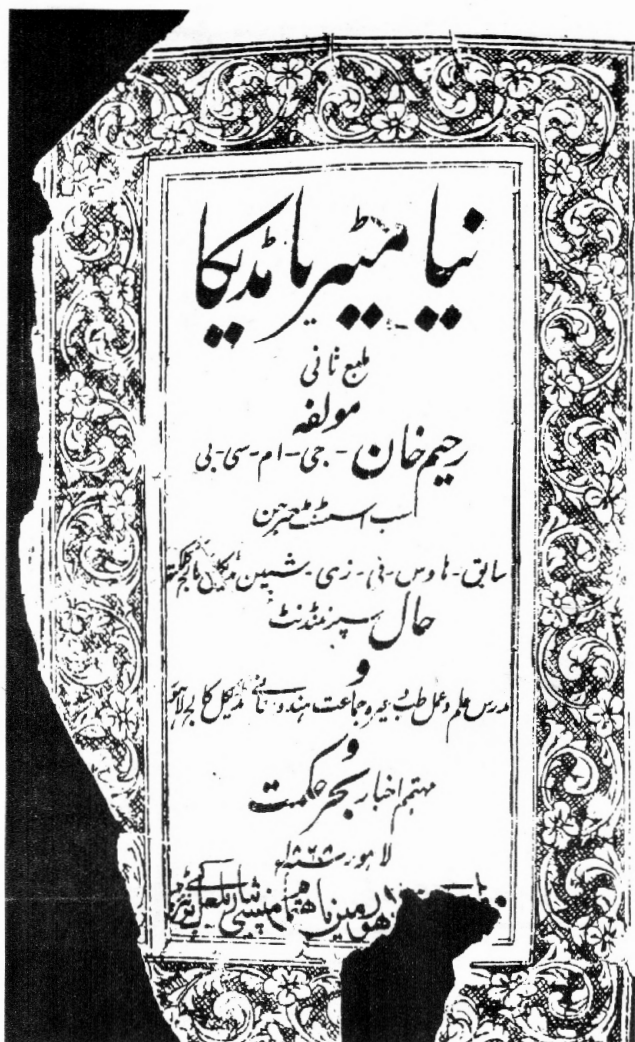 نیا میٹیریا مڈیکا
طبع ثانی
مولفہ
رحیم خان - جی - ام - سی - بی
سب اسسٹنٹ سرجن
سابق - ہاوس - فی - زی - شیین مڈیکل کالج کلکتہ
حال سپرنٹنڈنٹ
و
مدرس علم و عمل طب وغیرہ جماعت ہندوستانی مڈیکل کالج لاہور
و
مہتمم اخبار بحر حکمت
لاہور سنہ
مین باهتمام منشی